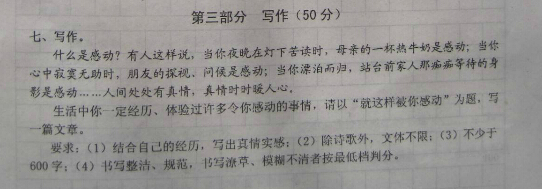 第三部分 写作(50分)
七、写作。
什么是感动?有人这样说,当你夜晚在灯下苦读时,母亲的一杯热牛奶是感动;当你
心中寂寞无助时,朋友的探视、问候是感动;当你漂泊而归,站台前家人那痴痴等待的身
影是感动……人间处处有真情,真情时时暖人心。
生活中你一定经历、体验过许多令你感动的事情,请以“就这样被你感动”为题,写
一篇文章。
要求:(1)结合自己的经历,写出真情实感;(2)除诗歌外,文体不限;(3)不少于
600字;(4)书写整洁、规范,书写潦草、模糊不清者按最低档判分。